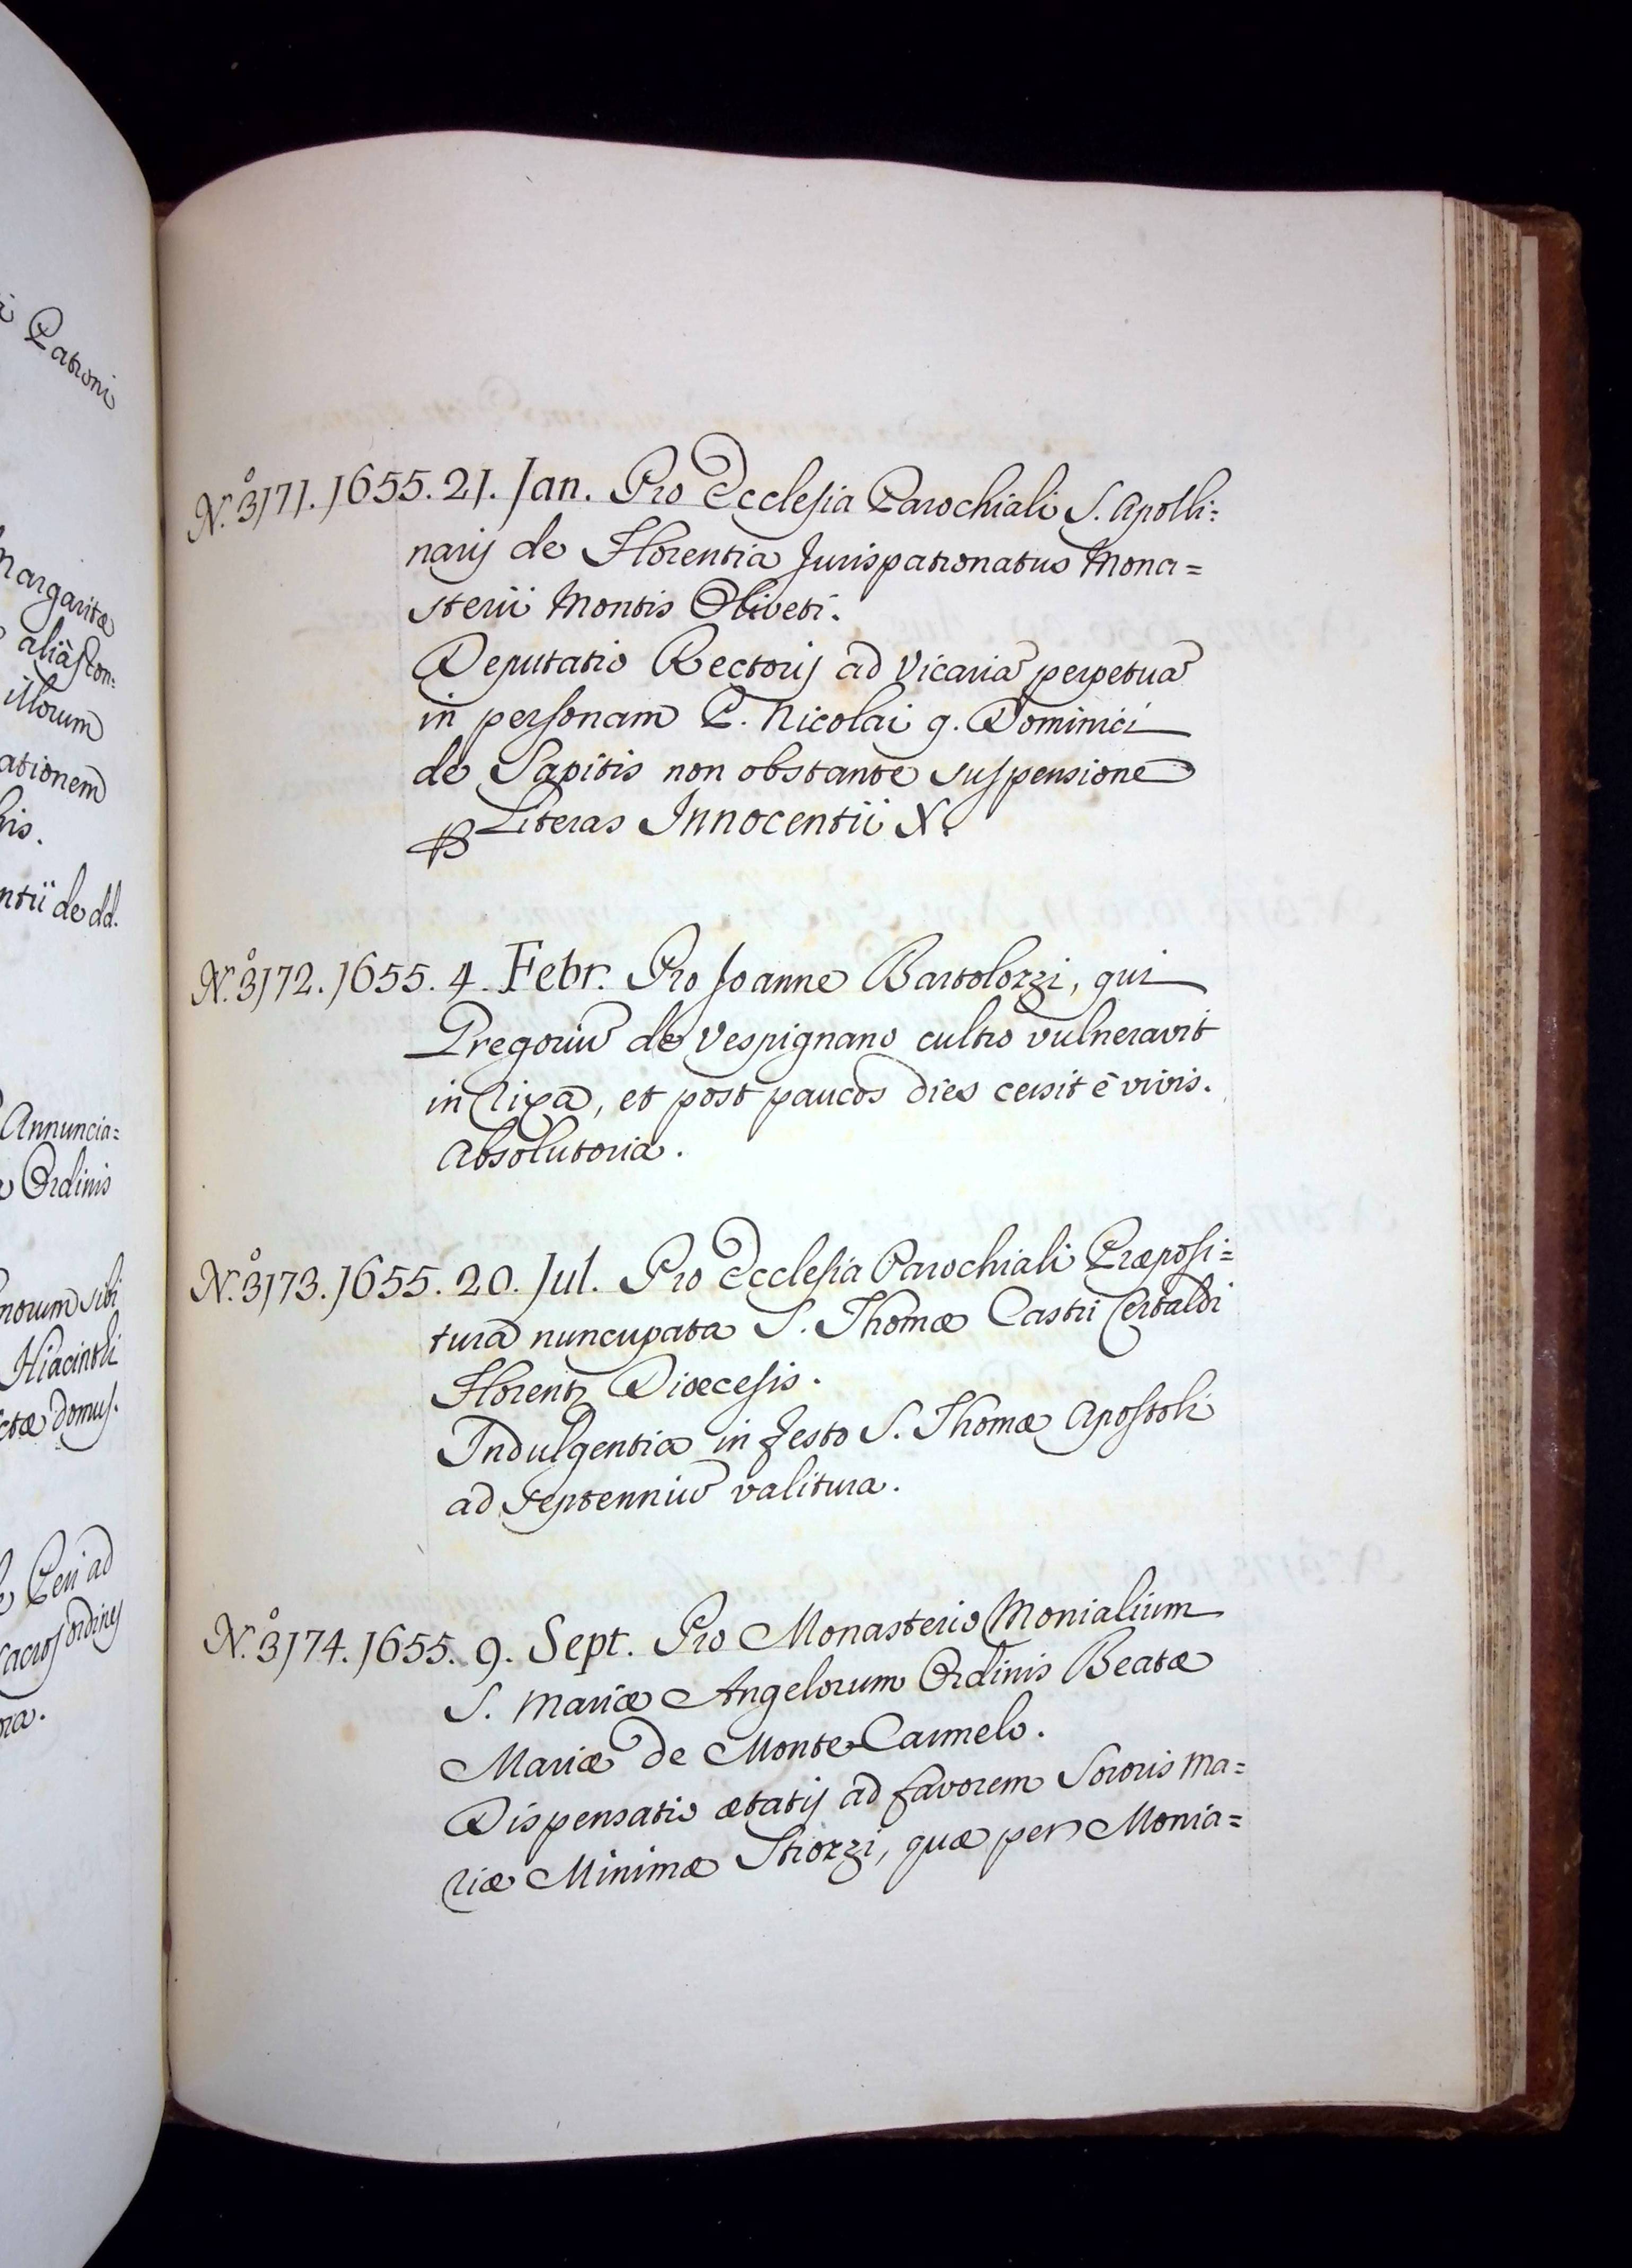 Patroni
Margaritæ
aliâs Con:
illorum
ationem
his.
ntii de dd.
Annuncia=
Ordinis
norum sibi
Hiacinthi
ctæ domus.
Peri ad
sacros ordines
N.º 3171. 1655. 21. Jan. Pro Ecclesia Parochiali S. Apolli:
naris de Florentia Jurispatronatus Mona=
sterii Montis Oliveti.
Deputatio Rectoris ad Vicariã perpetuã
in personam P. Nicolai q. Dominici
de Sapitis non obstante suspensione
ꝑ Literas Innocentii X.
N.º 3172. 1655. 4. Febr. Pro Joanne Bartolozzi, qui
Gregoriũ de Vespignano cultro vulneravit
in rixa, et post paucos dies cessit è vivis.
Absolutoria.
N.º 3173. 1655. 20. Jul. Pro Ecclesia Parochiali Præposi=
tura nuncupata S. Thomæ Castri Certaldi
Florentz Diœcesis.
Indulgentia in festo S. Thomæ Apostoli
ad septenniũ valitura.
N.º 3174. 1655. 9. Sept. Pro Monasterio Monialium
S. Mariæ Angelorum Ordinis Beatæ
Mariæ de Monte Carmelo.
Dispensatio ætatis ad favorem Sororis Ma=
riæ Minimæ Strozzi, quæ per Monia=